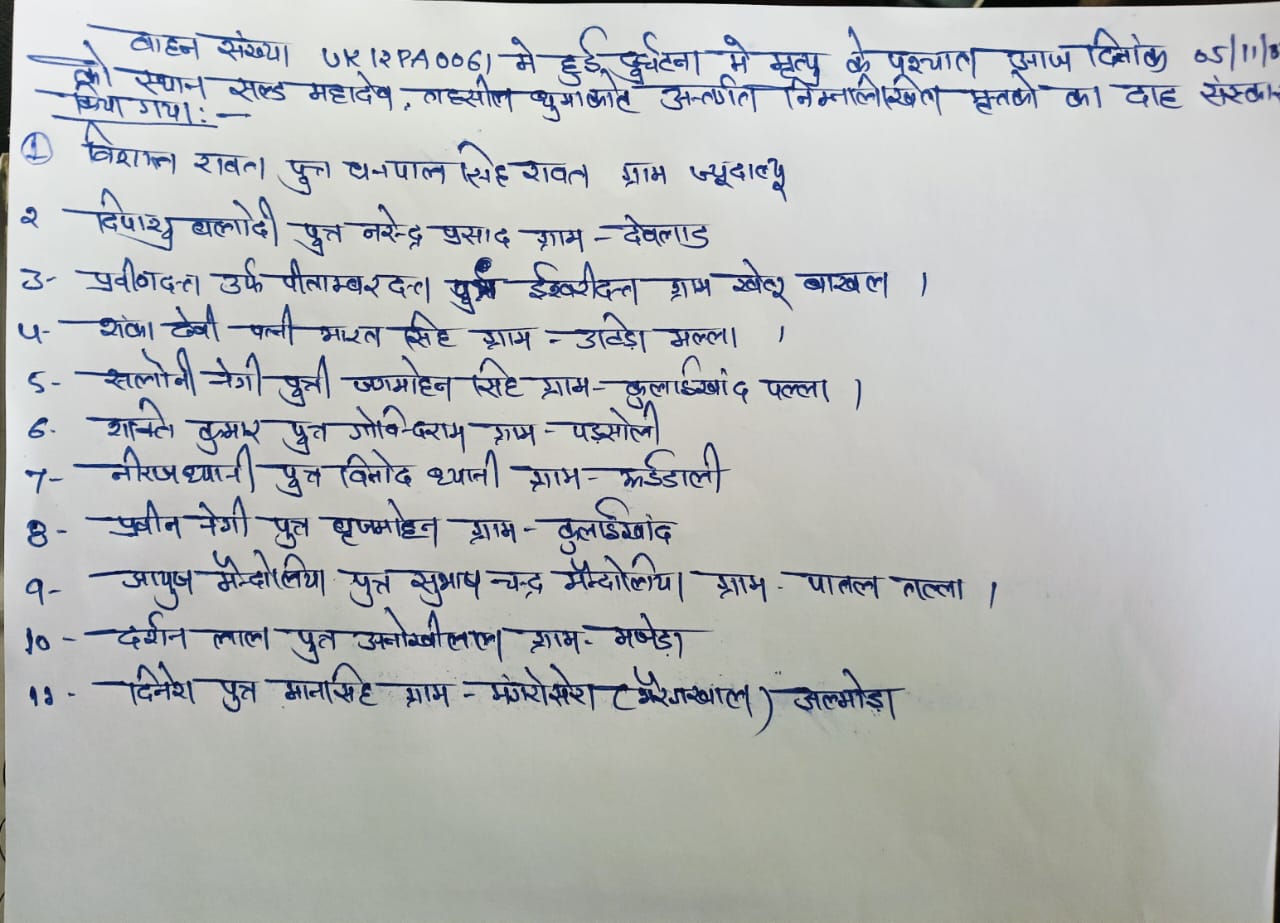 वाहन संख्या UK12PA0061 मे हुई दुर्घटना मे मृत्यु के पश्चात आज दिनांक 05/11/
को स्थान सल्ड महादेव, तहसील धुमाकोट अन्तर्गत निम्नलिखित मृतको का दाह संस्कार
किया गया:-
① विशाल रावत पुत्र धनपाल सिंह रावत ग्राम ज्यूदाल्यू
2 दिपाशु बलोदी पुत्र नरेन्द्र प्रसाद ग्राम - देवलाड
3- प्रवीणदत्त उर्फ पीताम्बर दत्त पुत्र ईश्वरीदत्त ग्राम खेतू बाखल ।
4- देवी पत्नी भारत सिंह ग्राम - मल्ला ।
5- सलोनी नेगी पुत्री सिंह ग्राम- कुलाईखांद पल्ला ।
6- शक्ति कुमार पुत्र गोविन्दराम ग्राम - पड़सोली
7- नीरज ध्यानी पुत्र विनोद ध्यानी ग्राम- झईडाली
8- प्रवीन नेगी पुत्र बृजमोहन ग्राम - कुलाईखांद
9- आयुष मैन्दोलिया पुत्र सुभाष चन्द्र मैन्दोलिया ग्राम - पातल तल्ला ।
10- दर्शन लाल पुत्र अनोखीलाल ग्राम- मझेड़ा
11- दिनेश पुत्र मानसिंह ग्राम - मंगरोसेरा (भैरंगखाल) अल्मोड़ा